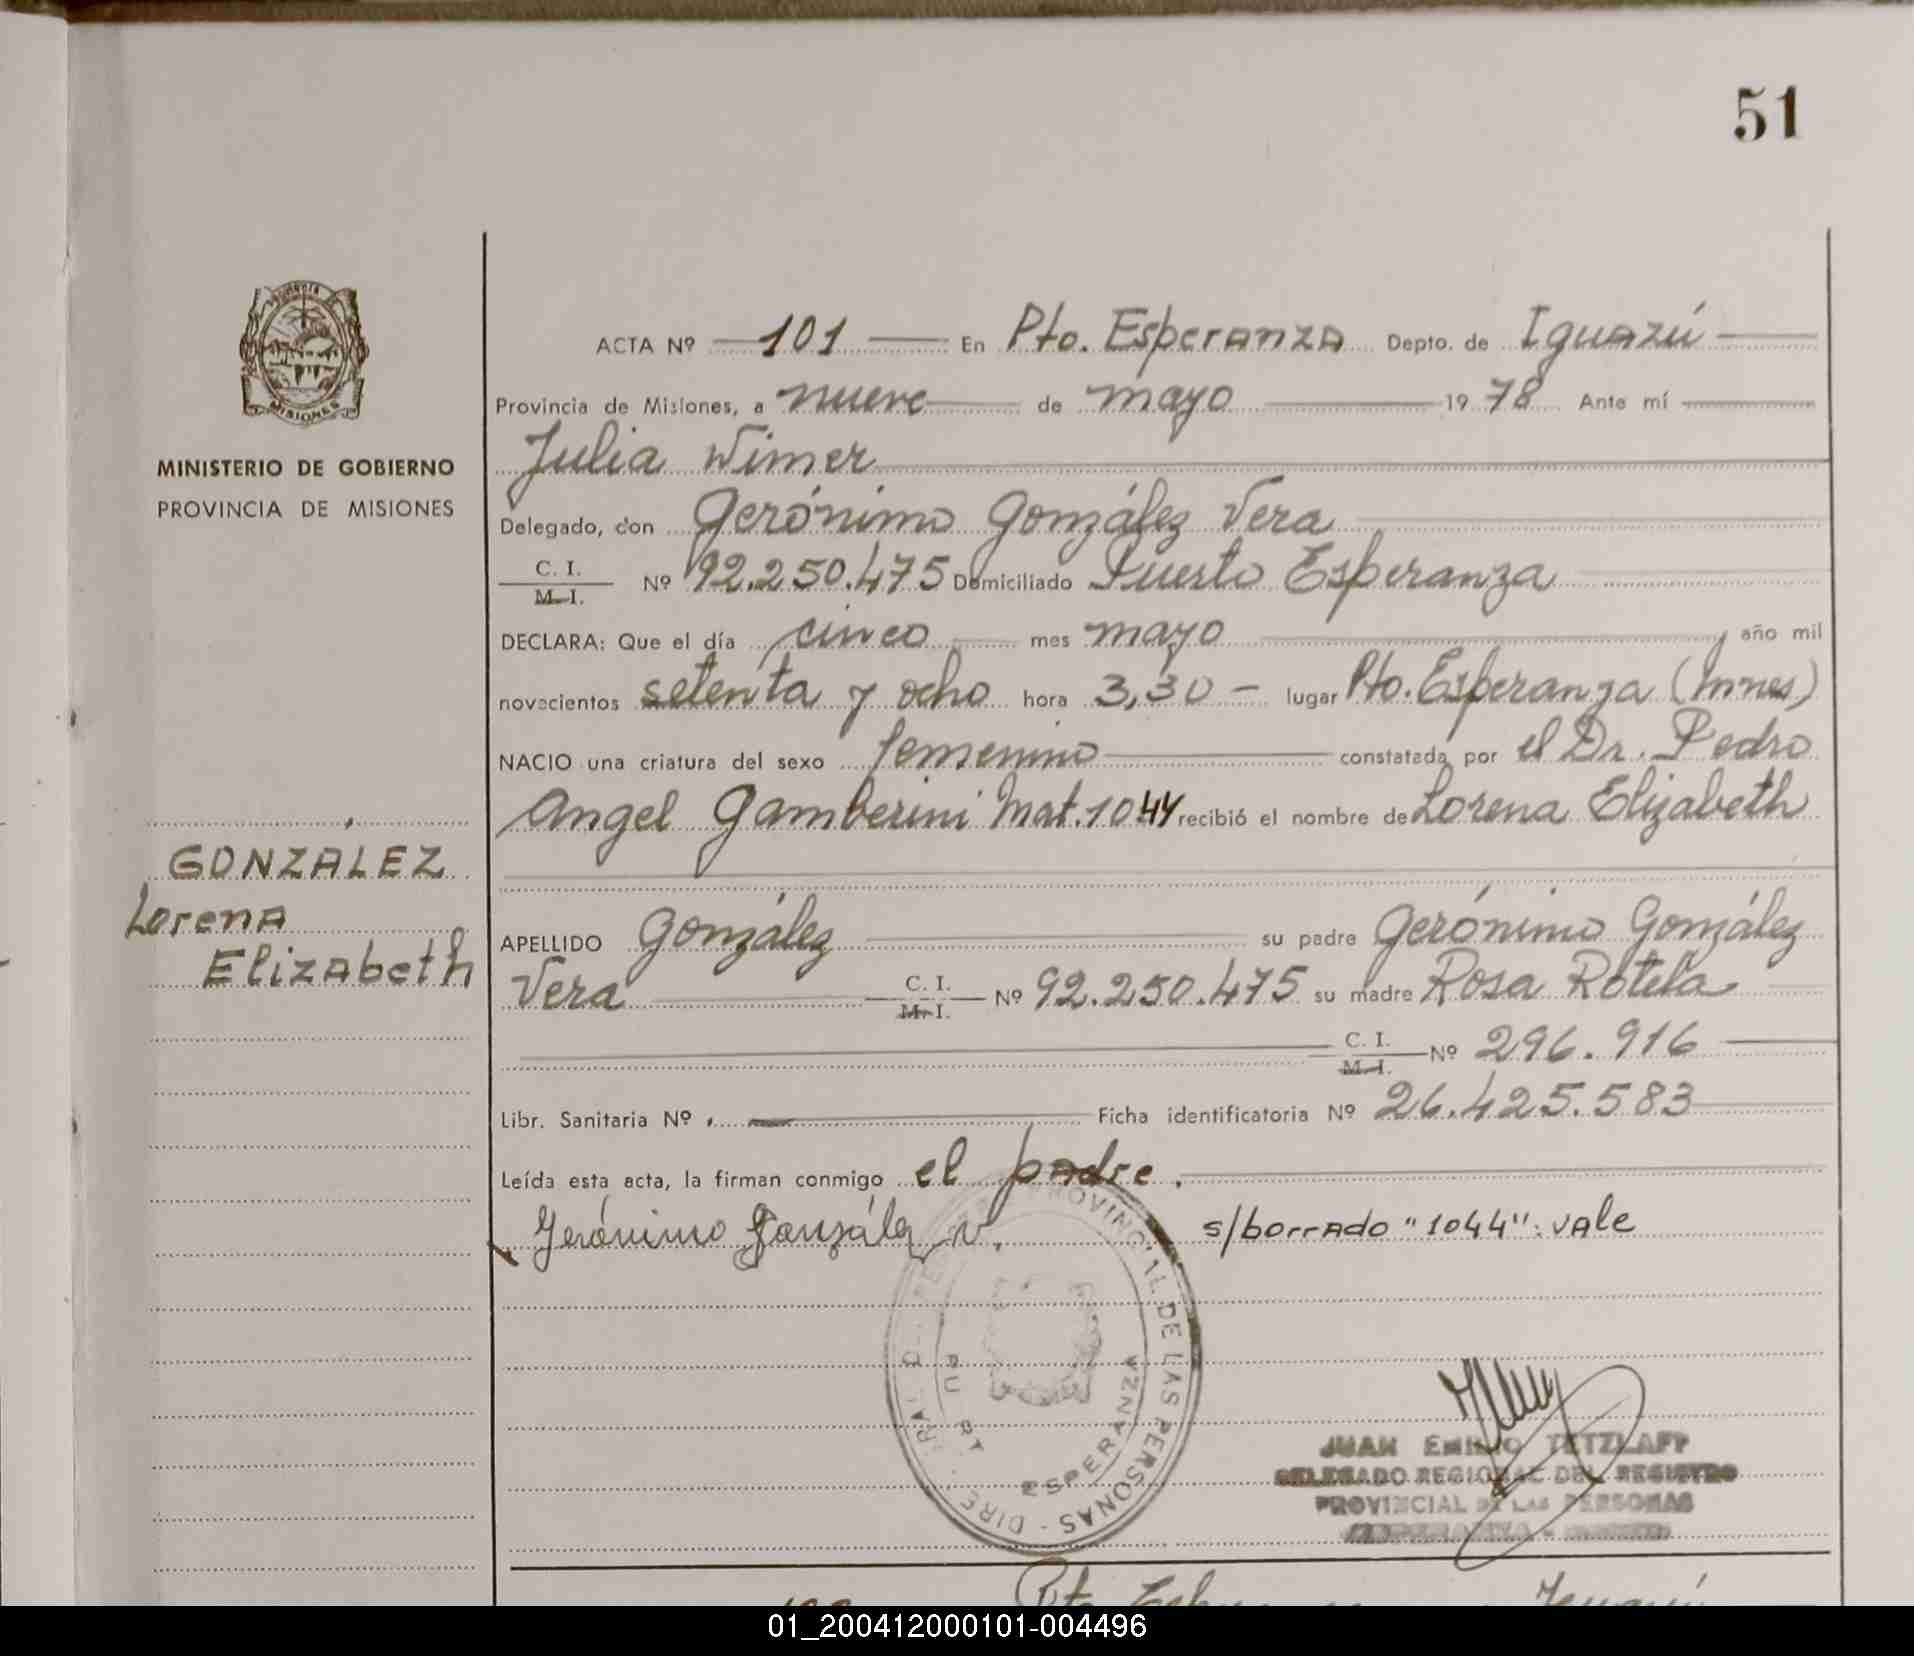 51
PROVINCIA DE
MISIONES
MINISTERIO DE GOBIERNO
PROVINCIA DE MISIONES
GONZALEZ
Lorena
Elizabeth
ACTA Nº 101 En Pto. Esperanza Depto. de Iguazú
Provincia de Misiones, a nueve de mayo 1978 Ante mí
Julia Wimer
Delegado, don Gerónimo González Vera
C. I.
M. I.
Nº 92.250.475 Domiciliado Puerto Esperanza
DECLARA: Que el día cinco mes mayo, año mil
novecientos setenta y ocho hora 3,30 - lugar Pto. Esperanza (Mnes)
NACIO una criatura del sexo femenino constatada por el Dr. Pedro
Angel Gamberini Mat. 1044 recibió el nombre de Lorena Elizabeth
APELLIDO González su padre Gerónimo González
Vera C. I. M. I. Nº 92.250.475 su madre Rosa Rotela
C. I. M. I. Nº 296.916
Libr. Sanitaria Nº. Ficha identificatoria Nº 26.425.583
Leída esta acta, la firman conmigo el padre.
Gerónimo González V. s/borrado "1044": vale
PROVINCIAL DE LAS PERSONAS - DIRE
ESPERANZA
JUAN EMILIO TETZLAFF
DELEGADO REGIONAL DEL REGISTRO
PROVINCIAL DE LAS PERSONAS
01_200412000101-004496